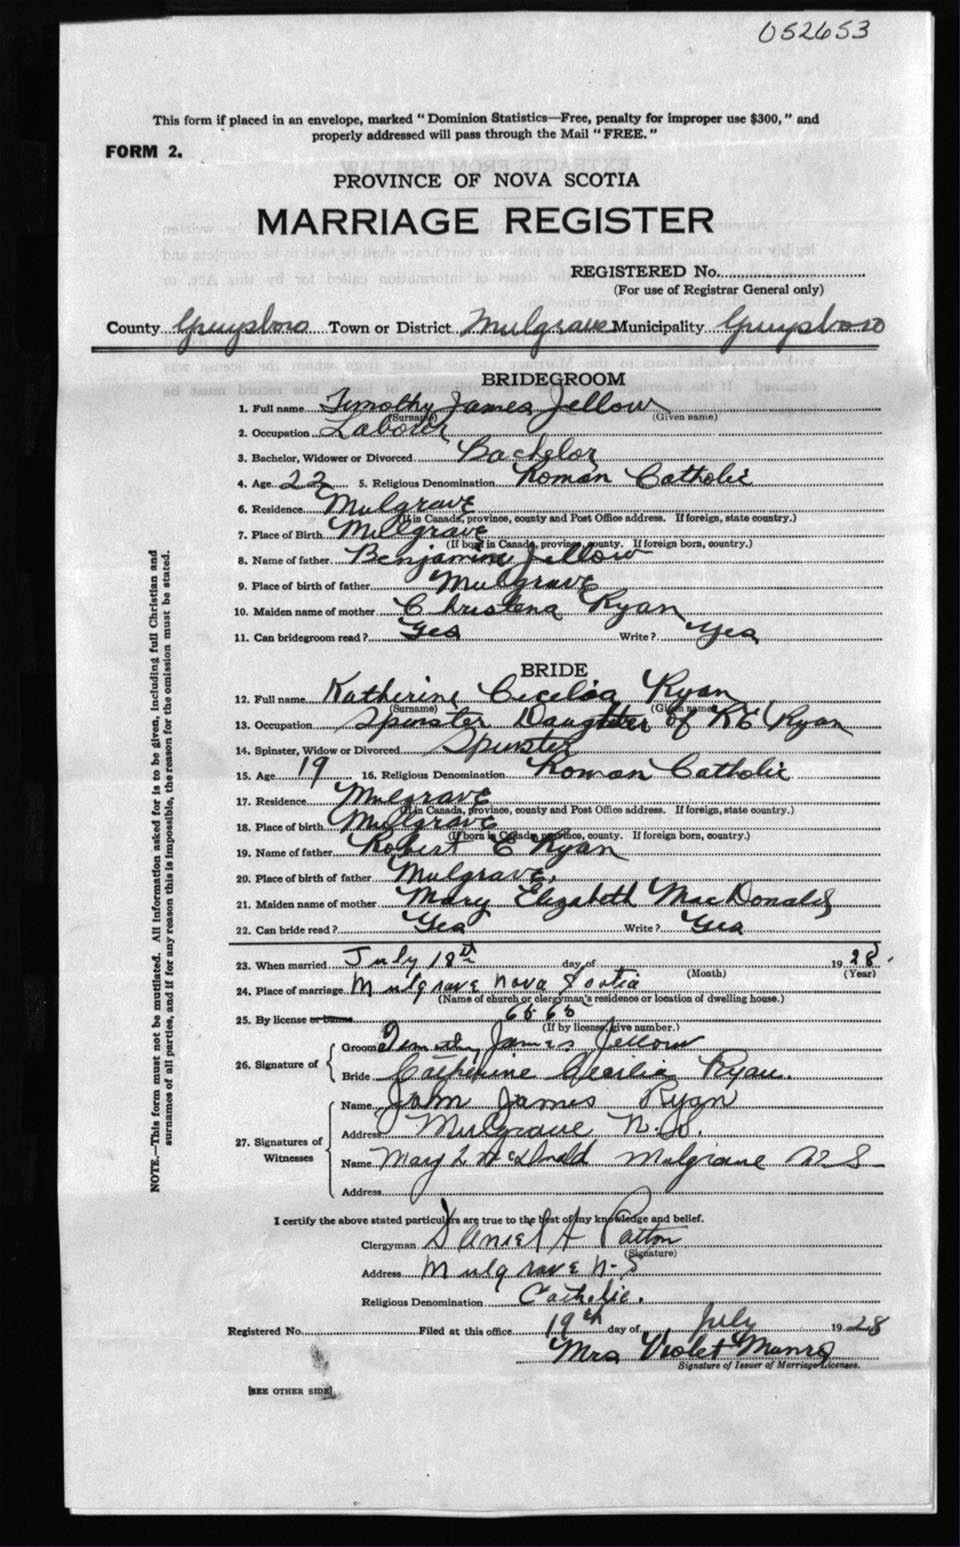 052653
This form if placed in an envelope, marked "Dominion Statistics—Free, penalty for improper use $300," and
properly addressed will pass through the Mail "FREE."
FORM 2.
PROVINCE OF NOVA SCOTIA
MARRIAGE REGISTER
REGISTERED No.
(For use of Registrar General only)
County Guysboro Town or District Mulgrave Municipality Guysboro
BRIDEGROOM
1. Full name Timothy James Jellow
(Surname) (Given name)
2. Occupation Laborer
3. Bachelor, Widower or Divorced Bachelor
4. Age 23 5. Religious Denomination Roman Catholic
6. Residence Mulgrave
(If in Canada, province, county and Post Office address. If foreign, state country.)
7. Place of Birth Mulgrave
(If born in Canada, province, county. If foreign born, country.)
8. Name of father Benjamine Jellow
9. Place of birth of father Mulgrave
10. Maiden name of mother Christena Ryan
11. Can bridegroom read? Yes Write? Yes
BRIDE
12. Full name Katherine Cecelia Ryan
(Surname) (Given name)
13. Occupation Spinster Daughter of R E Ryan
14. Spinster, Widow or Divorced Spinster
15. Age 19 16. Religious Denomination Roman Catholic
17. Residence Mulgrave
(If in Canada, province, county and Post Office address. If foreign, state country.)
18. Place of birth Mulgrave
(If born in Canada, province, county. If foreign born, country.)
19. Name of father Robert E Ryan
20. Place of birth of father Mulgrave.
21. Maiden name of mother Mary Elizabeth MacDonald
22. Can bride read? Yes Write? Yes
23. When married July 18th day of 1928.
(Month) (Year)
24. Place of marriage Mulgrave Nova Scotia
(Name of church or clergyman's residence or location of dwelling house.)
25. By license or banns
(If by license, give number.)
26. Signature of
Groom Timothy James Jellow
Bride Catherine Cecilia Ryan.
27. Signatures of Witnesses
Name John James Ryan
Address Mulgrave N.S.
Name Mary L McDonald Mulgrave N S
Address
I certify the above stated particulars are true to the best of my knowledge and belief.
Clergyman Daniel A Patton
(Signature)
Address Mulgrave N-S
Religious Denomination Catholic.
Registered No. Filed at this office 19th day of July 1928
Mrs Violet Munro
Signature of Issuer of Marriage Licenses.
[SEE OTHER SIDE]
NOTE.—This form must not be mutilated. All information asked for is to be given, including full Christian and
surnames of all parties, and if for any reason this is impossible, the reason for the omission must be stated.